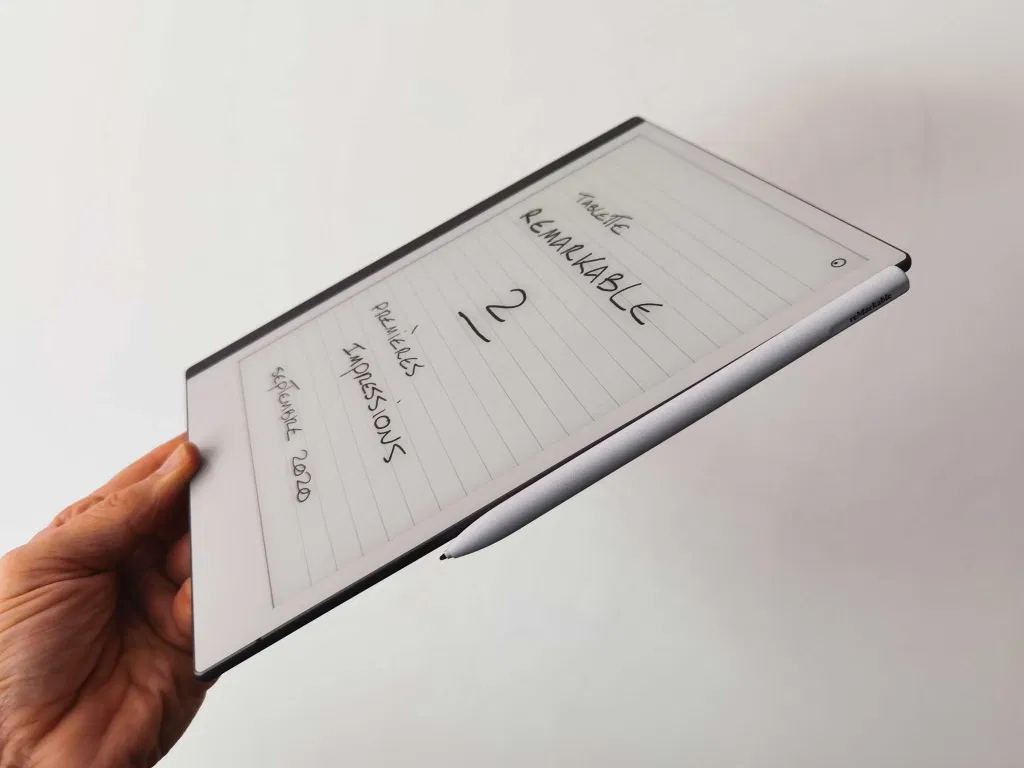 TABLETTE
REMARKABLE
2
PREMIÈRES
IMPRESSIONS
SEPTEMBRE 2020
reMarkable